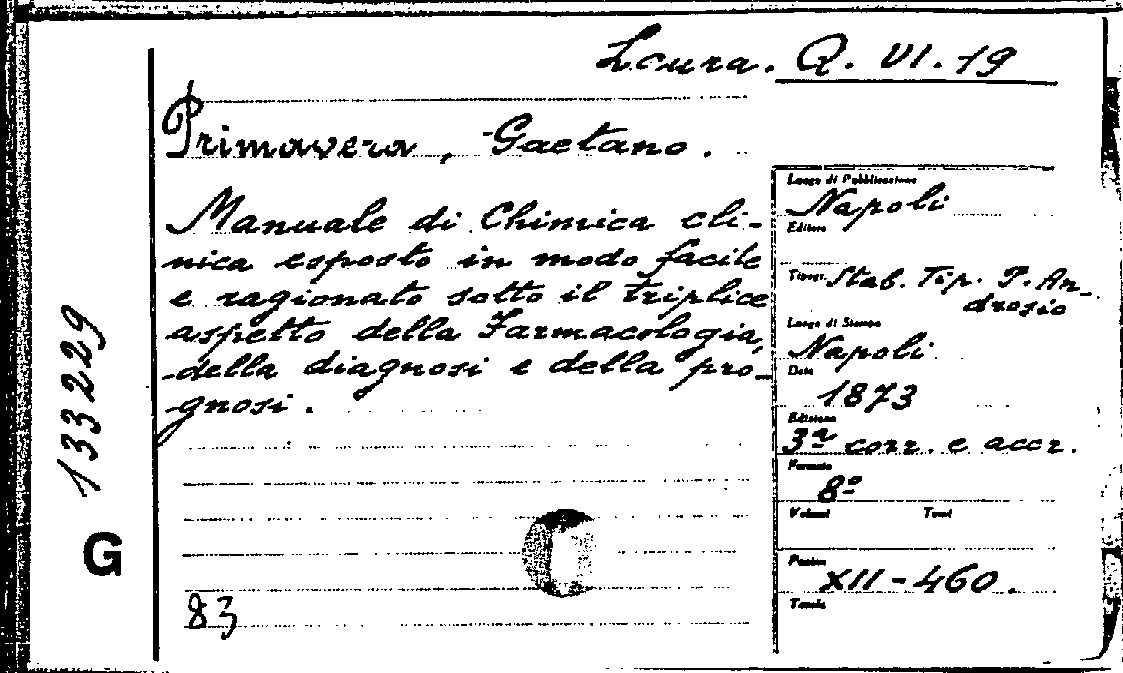 Laura. Q. VI. 19
Primavera, Gaetano.
Manuale di Chimica cli-
nica esposto in modo facile
e ragionato sotto il triplice
aspetto della Farmacologia,
della diagnosi e della pro-
gnosi.
83
133229
G
Luogo di Pubblicazione
Napoli
Editore
Tipogr. Stab. Tip. P. An-
drosio
Luogo di Stampa
Napoli
Data
1873
Edizione
3ª corr. e accr.
Formato
8º
Volumi Tomi
Pagine
XII-460.
Tavole